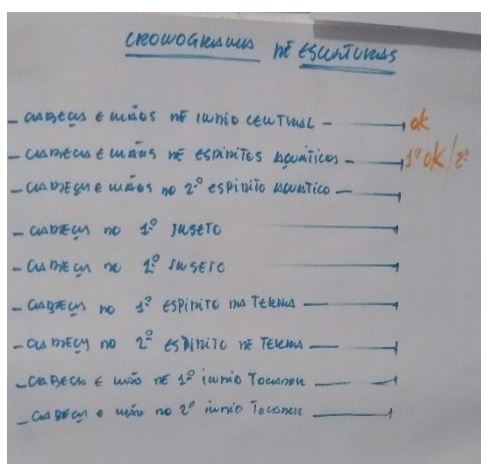 CRONOGRAMA DE ESCULTURAS
- CABEÇA E MÃOS DE ÍNDIO CENTRAL - OK
- CABEÇA E MÃOS DE ESPÍRITOS AQUÁTICOS - 1º OK / 2º
- CABEÇA E MÃOS NO 2º ESPÍRITO AQUÁTICO -
- CABEÇA NO 1º INSETO
- CABEÇA NO INSETO
- CABEÇA NO 1º ESPÍRITO DA TERRA
- CABEÇA NO 2º ESPÍRITO DE TERRA
- CABEÇA E MÃO DE 1º ÍNDIO TOCADOR
- CABEÇA E MÃO NO 2º ÍNDIO TOCADOR